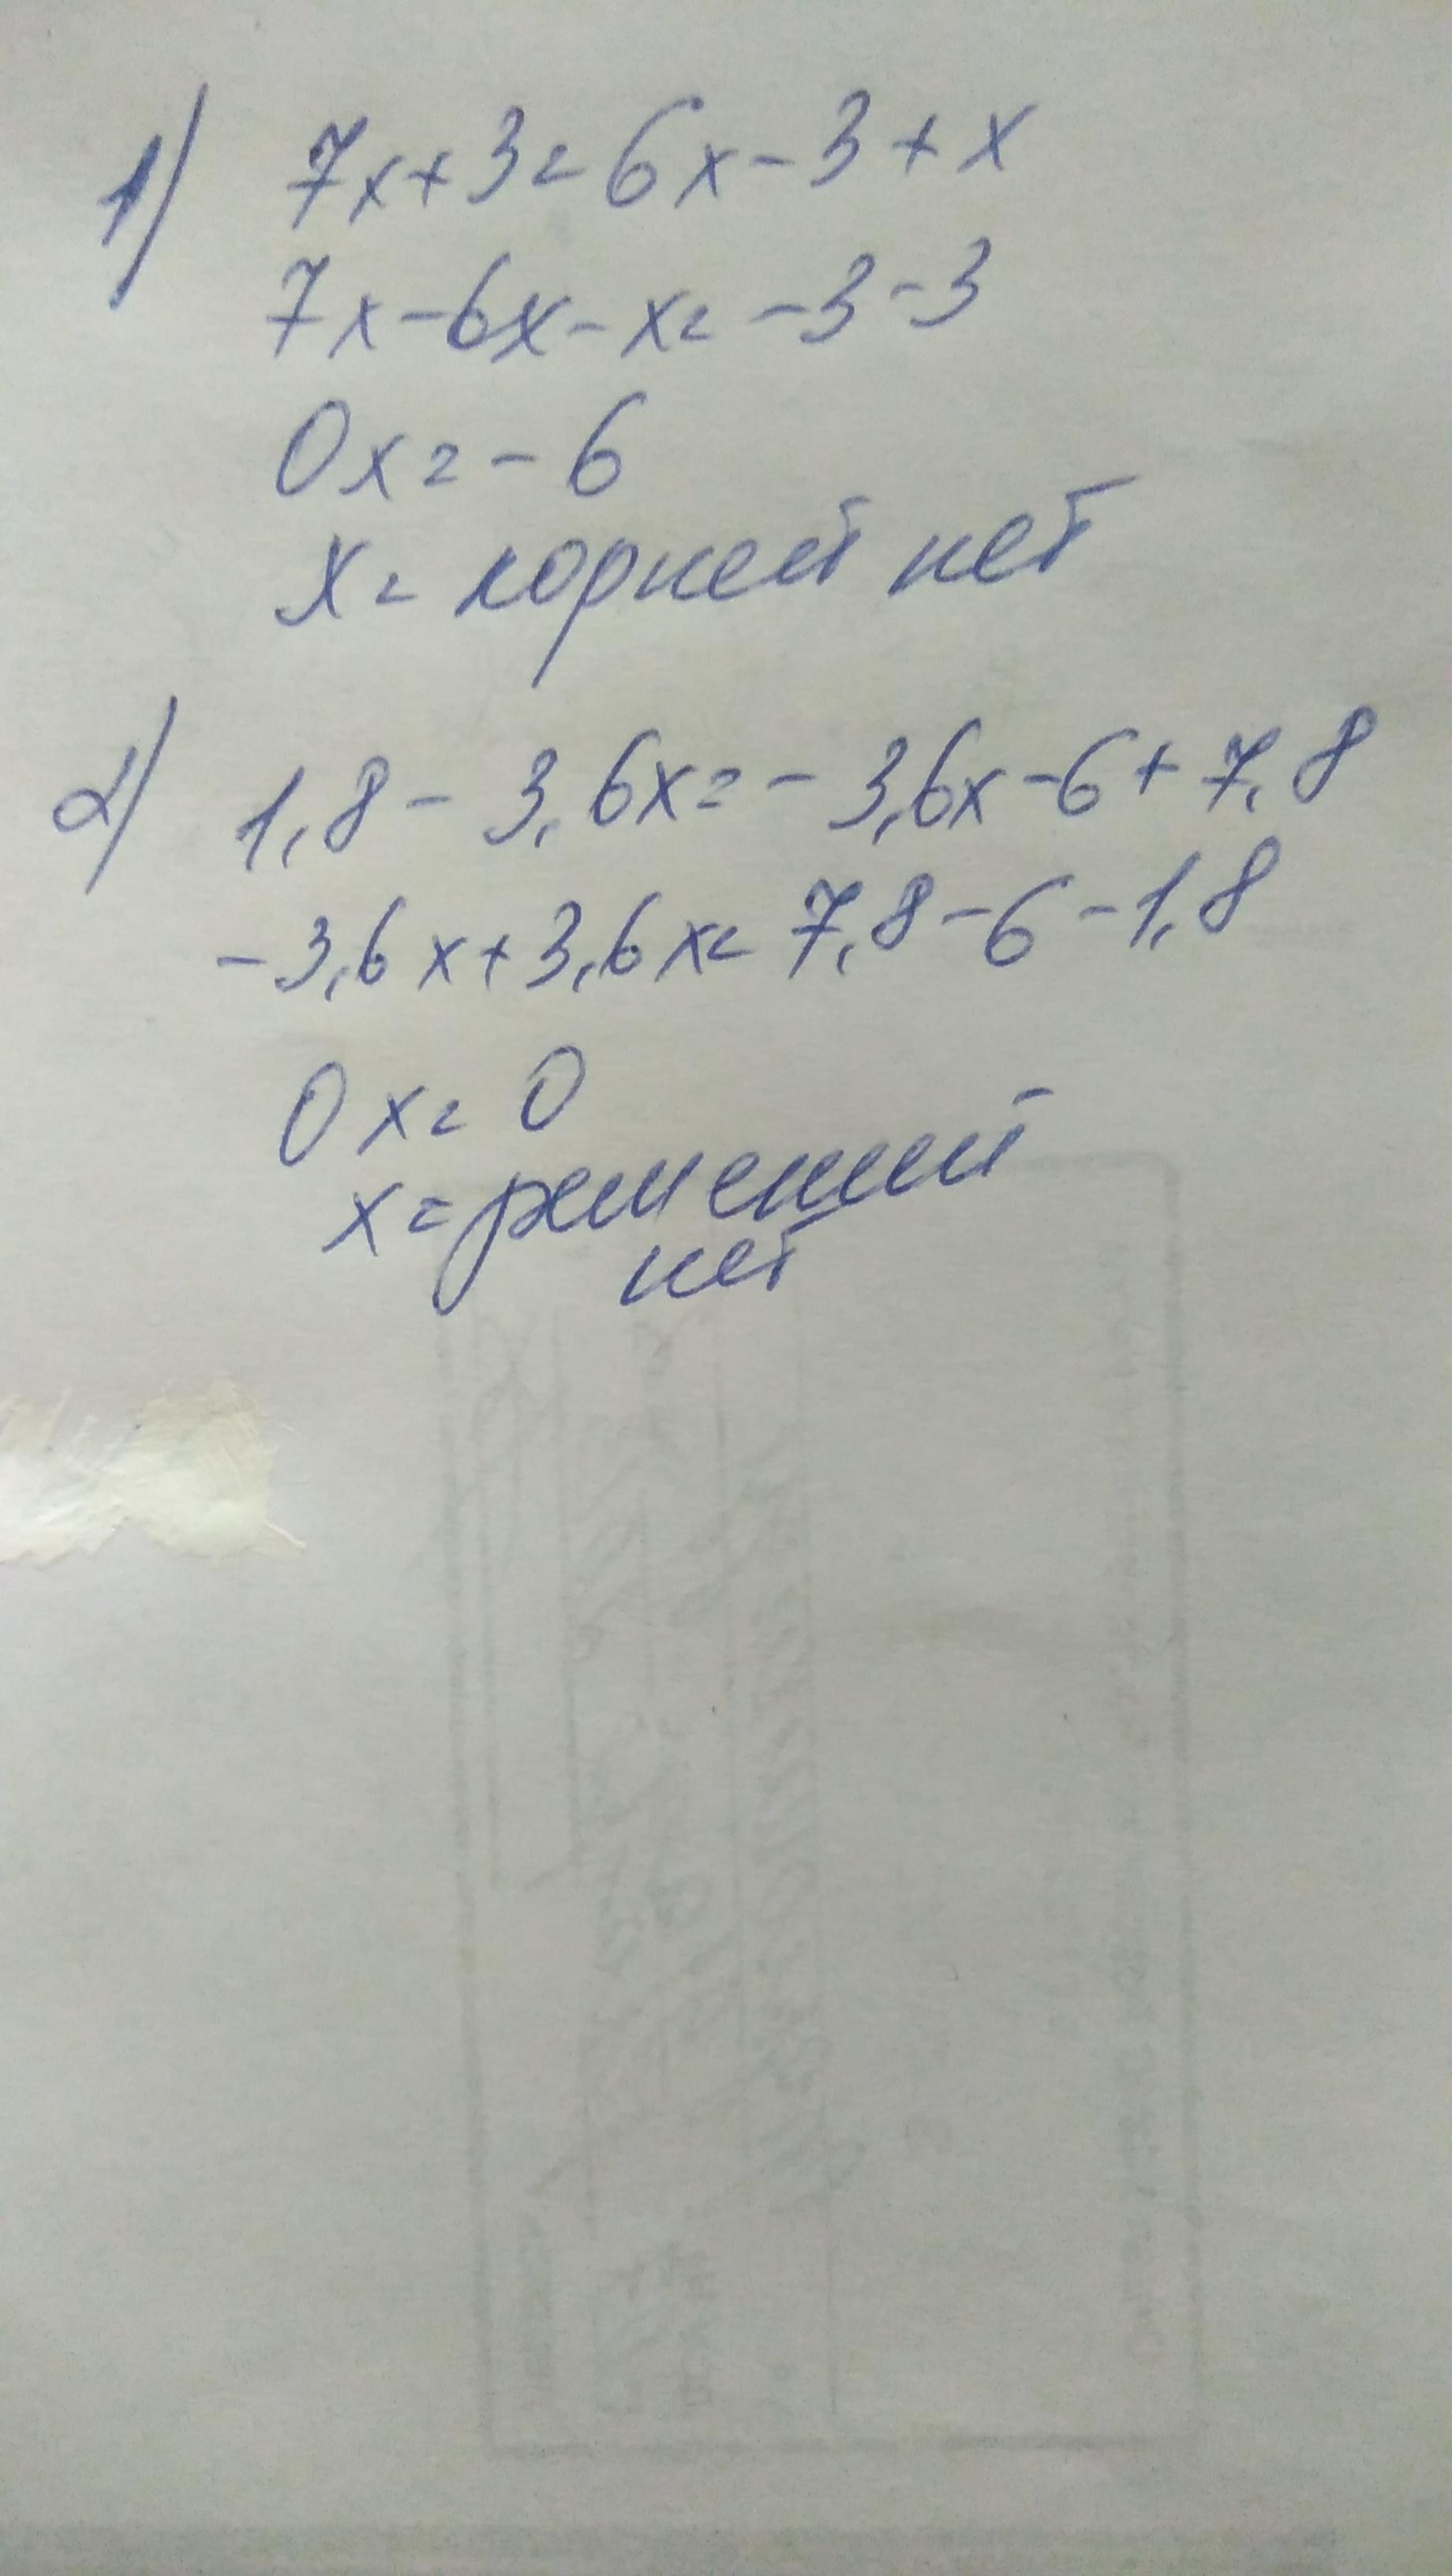 1) 7x+3=6x-3+x
7x-6x-x=-3-3
0x=-6
x=корней нет
2) 1,8-3,6x=-3,6x-6+7,8
-3,6x+3,6x=7,8-6-1,8
0x=0
x=решений
нет